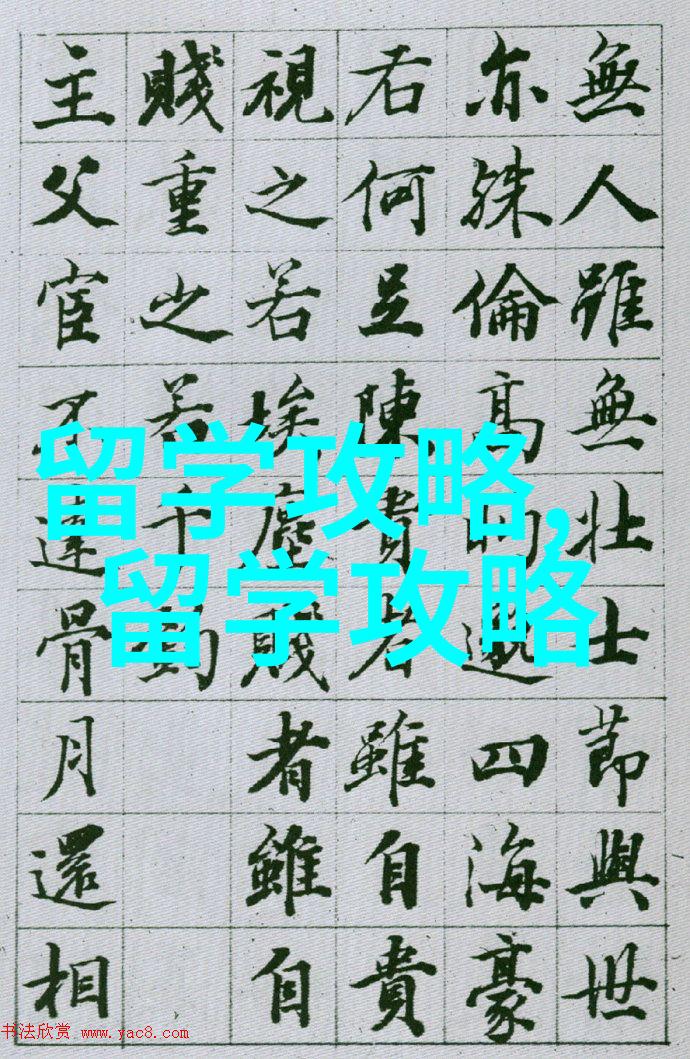 無人雖無壮士節與世
亦殊倫高眄邈四海豪
右何足陳貴者雖自貴
視之若埃塵賤者雖自
賤重之若千鈞
主父宦不達骨月還相
留学攻略,
留学攻略
书法欣赏 www.yac8.com